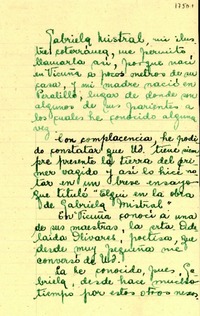 Gabriela Mistral, mi ilus
tre coterránea, me permito
llamarla así, porque nací
en Vicuña a pocos metros de su
casa, y mi madre nació en
Peralillo, lugar de donde son
algunos de sus parientes a
los cuales he conocido alguna
vez.
Con complacencia, he podi
do constatar que Ud. tiene siem
pre presente la tierra del pri
mer vagido y así lo hice no
tar en un breve ensayo
que titulé "Elqui en la obra
de Gabriela Mistral".
En Vicuña conocí a una
de sus maestras, la srta. Ade
laida Olivares, poetisa, que
desde muy pequeña me
conversó de Ud.
La he conocido, pues, Ga
briela, desde hace mucho
tiempo por estos otros nexos